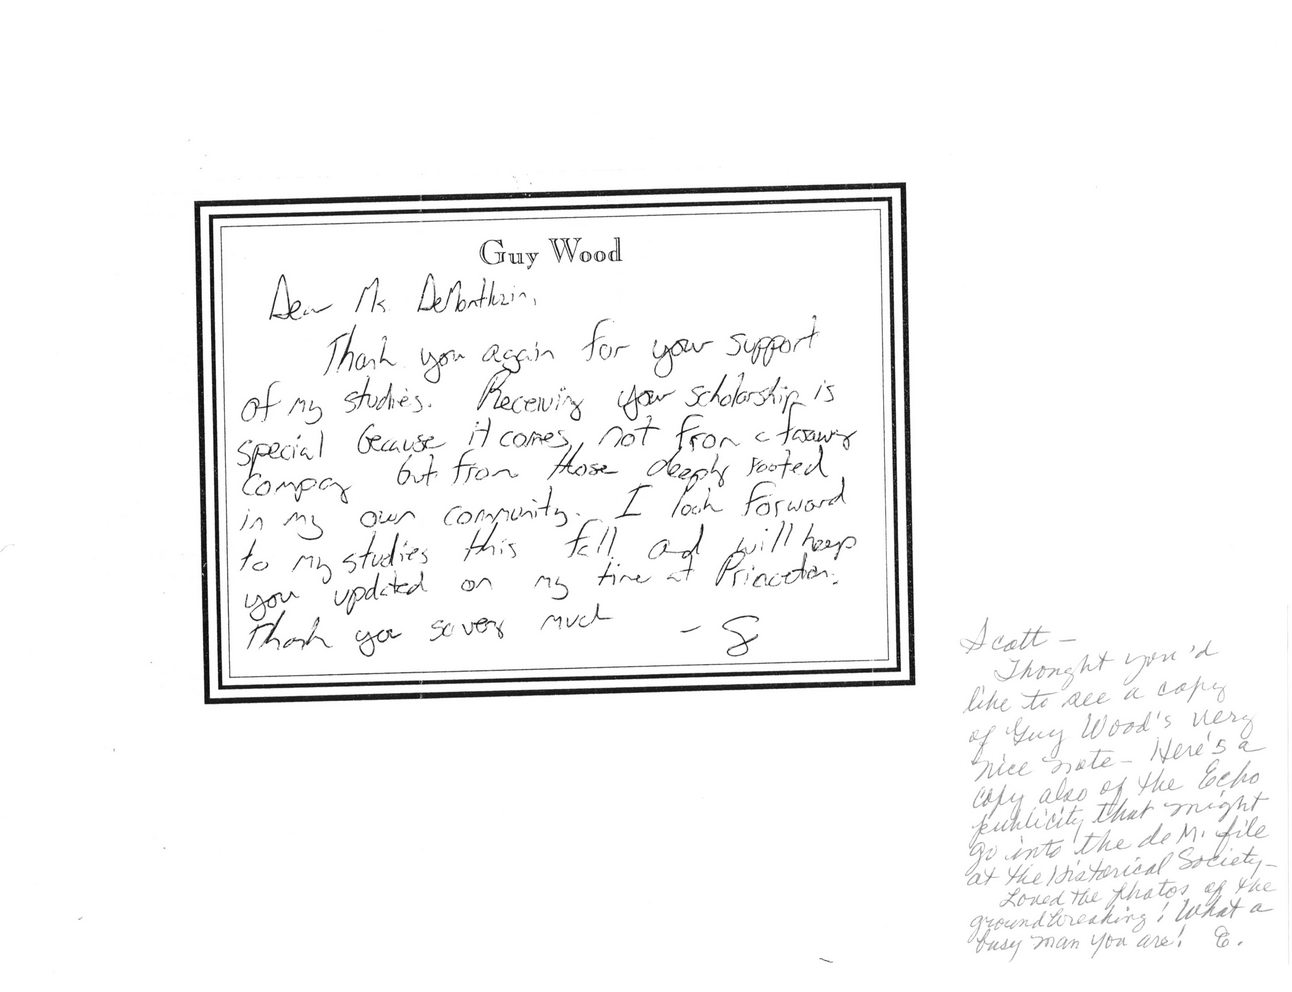 Guy Wood
Dear Ms. DeMontluzin,
Thank you again for your support
of my studies. Receiving your scholarship is
special because it comes, not from a faraway
company but from those deeply rooted
in my own community. I look forward
to my studies this fall and will keep
you updated on my time at Princeton.
Thank you so very much
- G
Scott -
Thought you'd
like to see a copy
of Guy Wood's very
nice note - Here's a
copy also of the Echo
publicity that might
go into the de M. file
at the Historical Society -
Loved the photos of the
groundbreaking! What a
busy man you are! E.